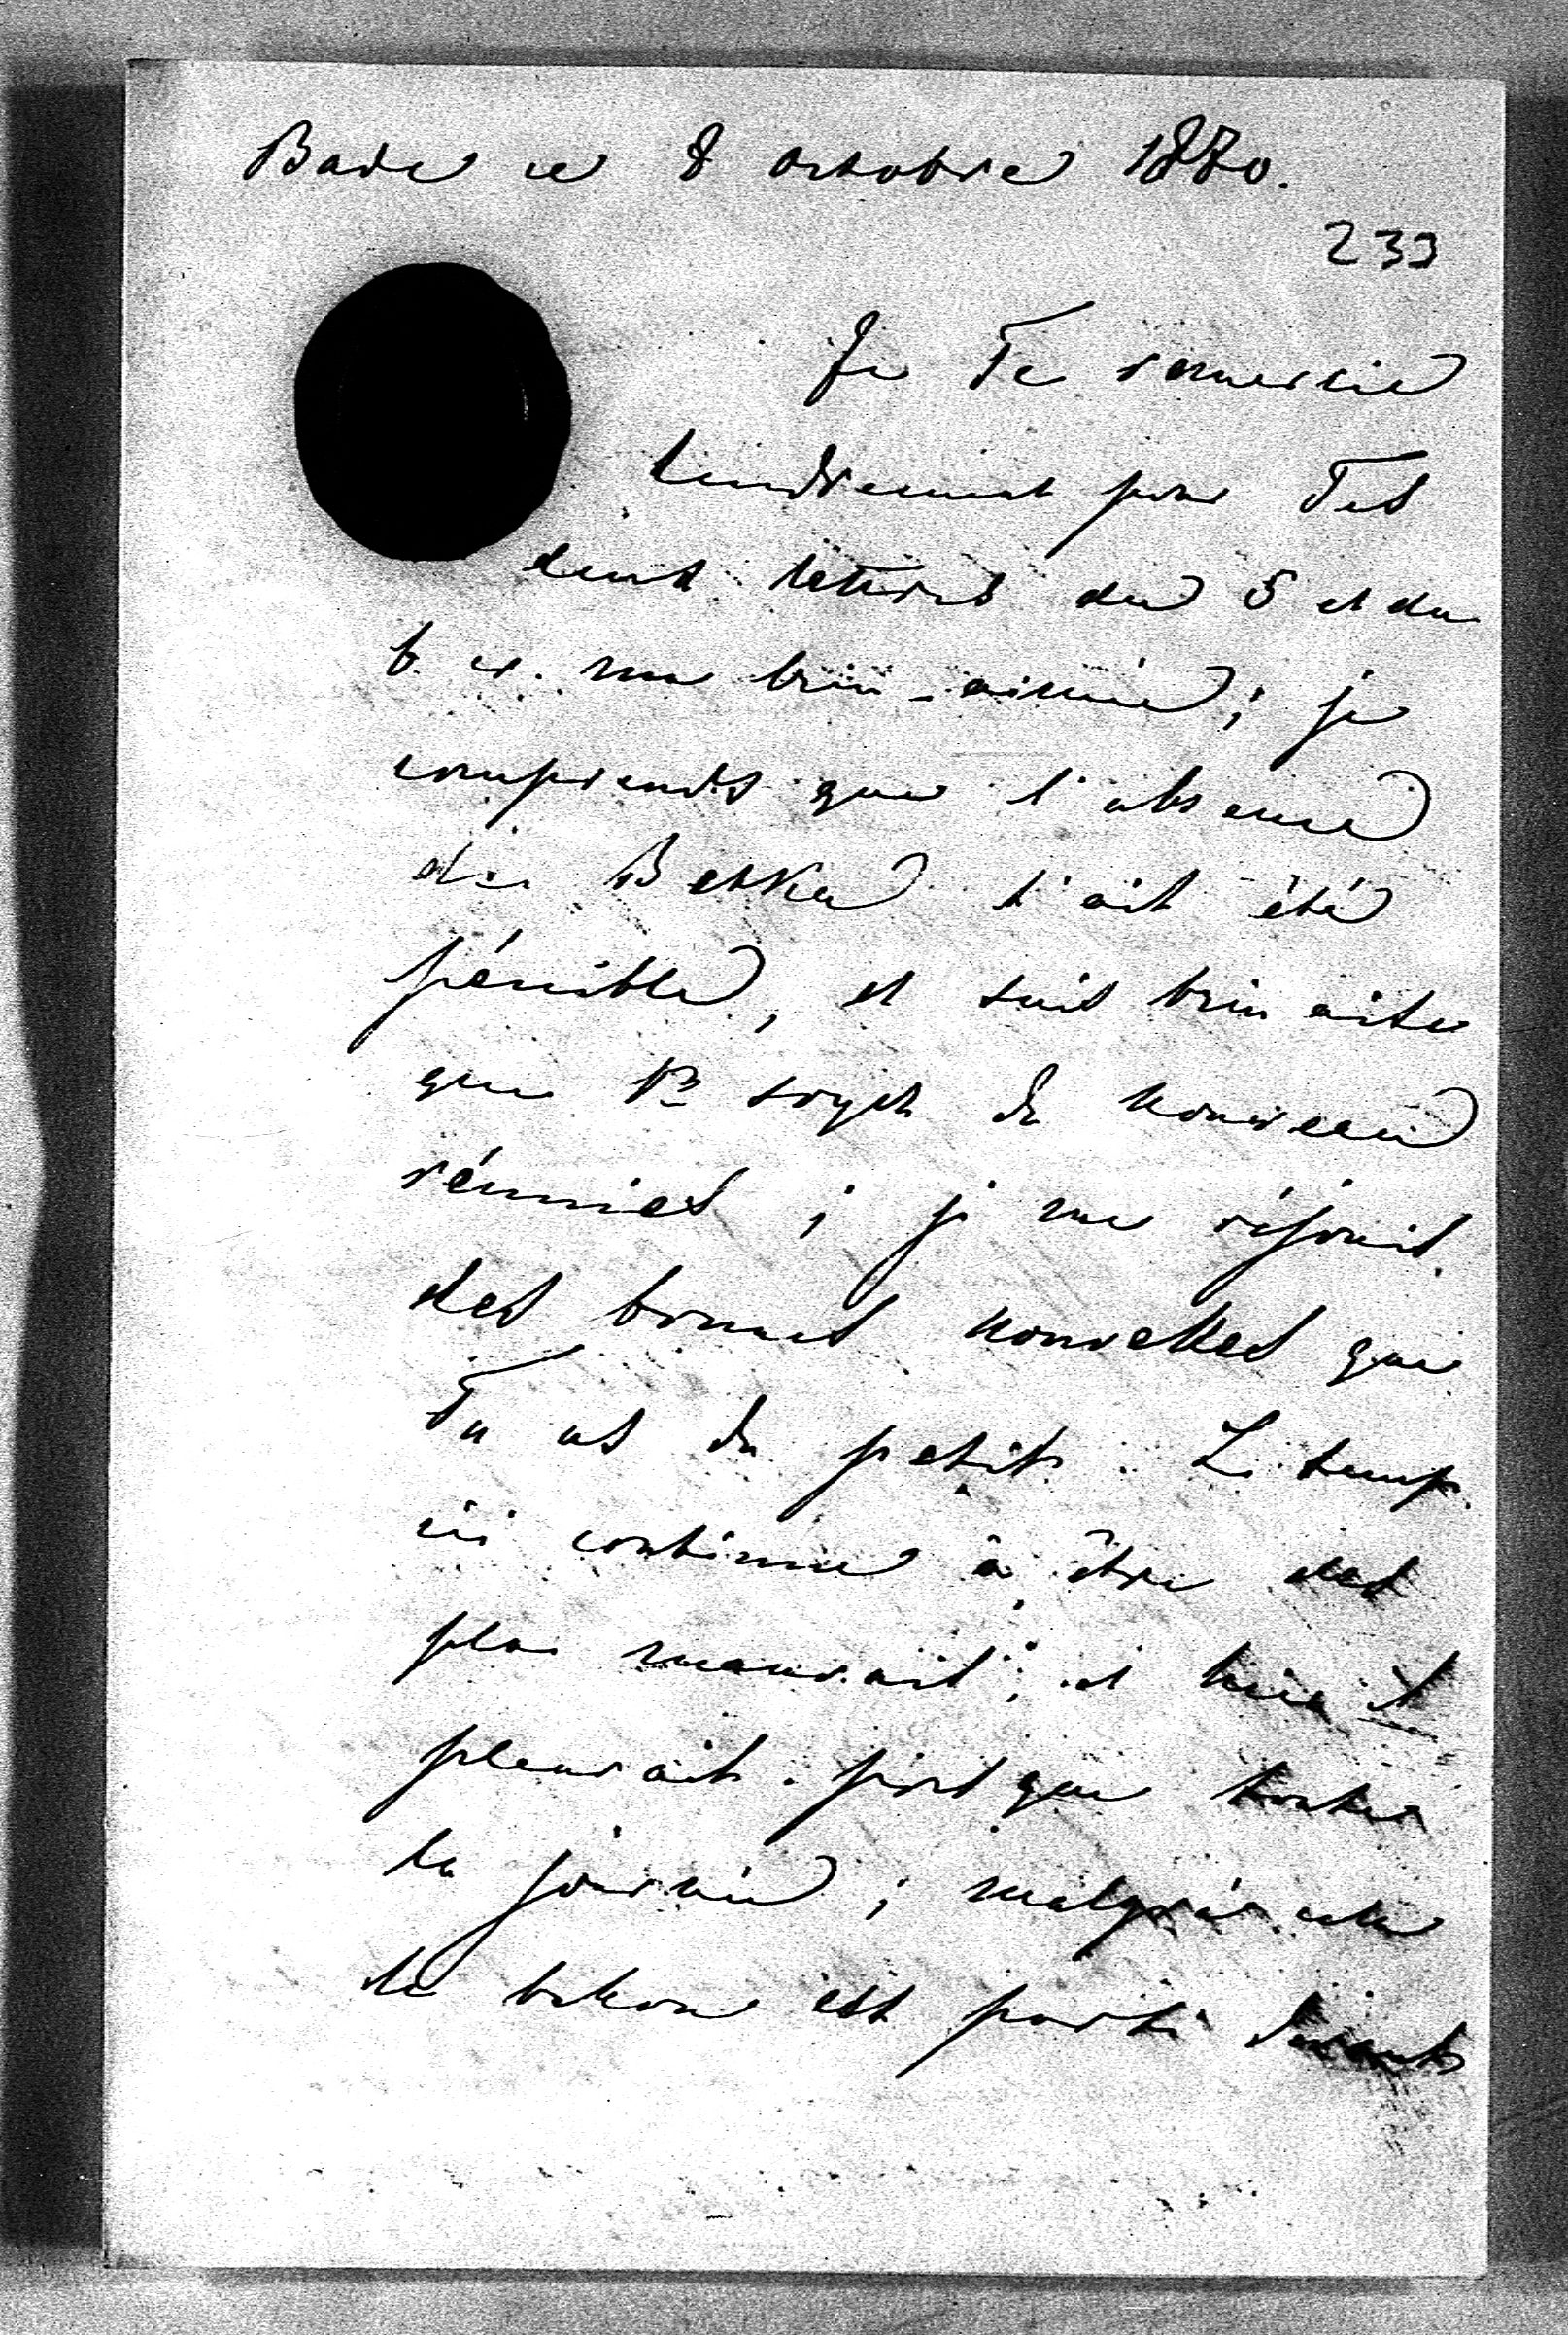 Bade ce 8 octobre 1880.
239
Je Te remercie
tendrement pour Tes
deux lettres du 5 et du
6 cr. ma bien-aimée; je
comprends que l'absence
de Betka t'ait été
pénible, et suis bien aise
que Vs soyez de nouveau
réunies; je me réjouis
des bonnes nouvelles que
Tu as du petit. Le temps
ici continue à être des
plus mauvais; et hier il
pleuvait presque toute
la journée; malgré cela
le ballon est parti devant